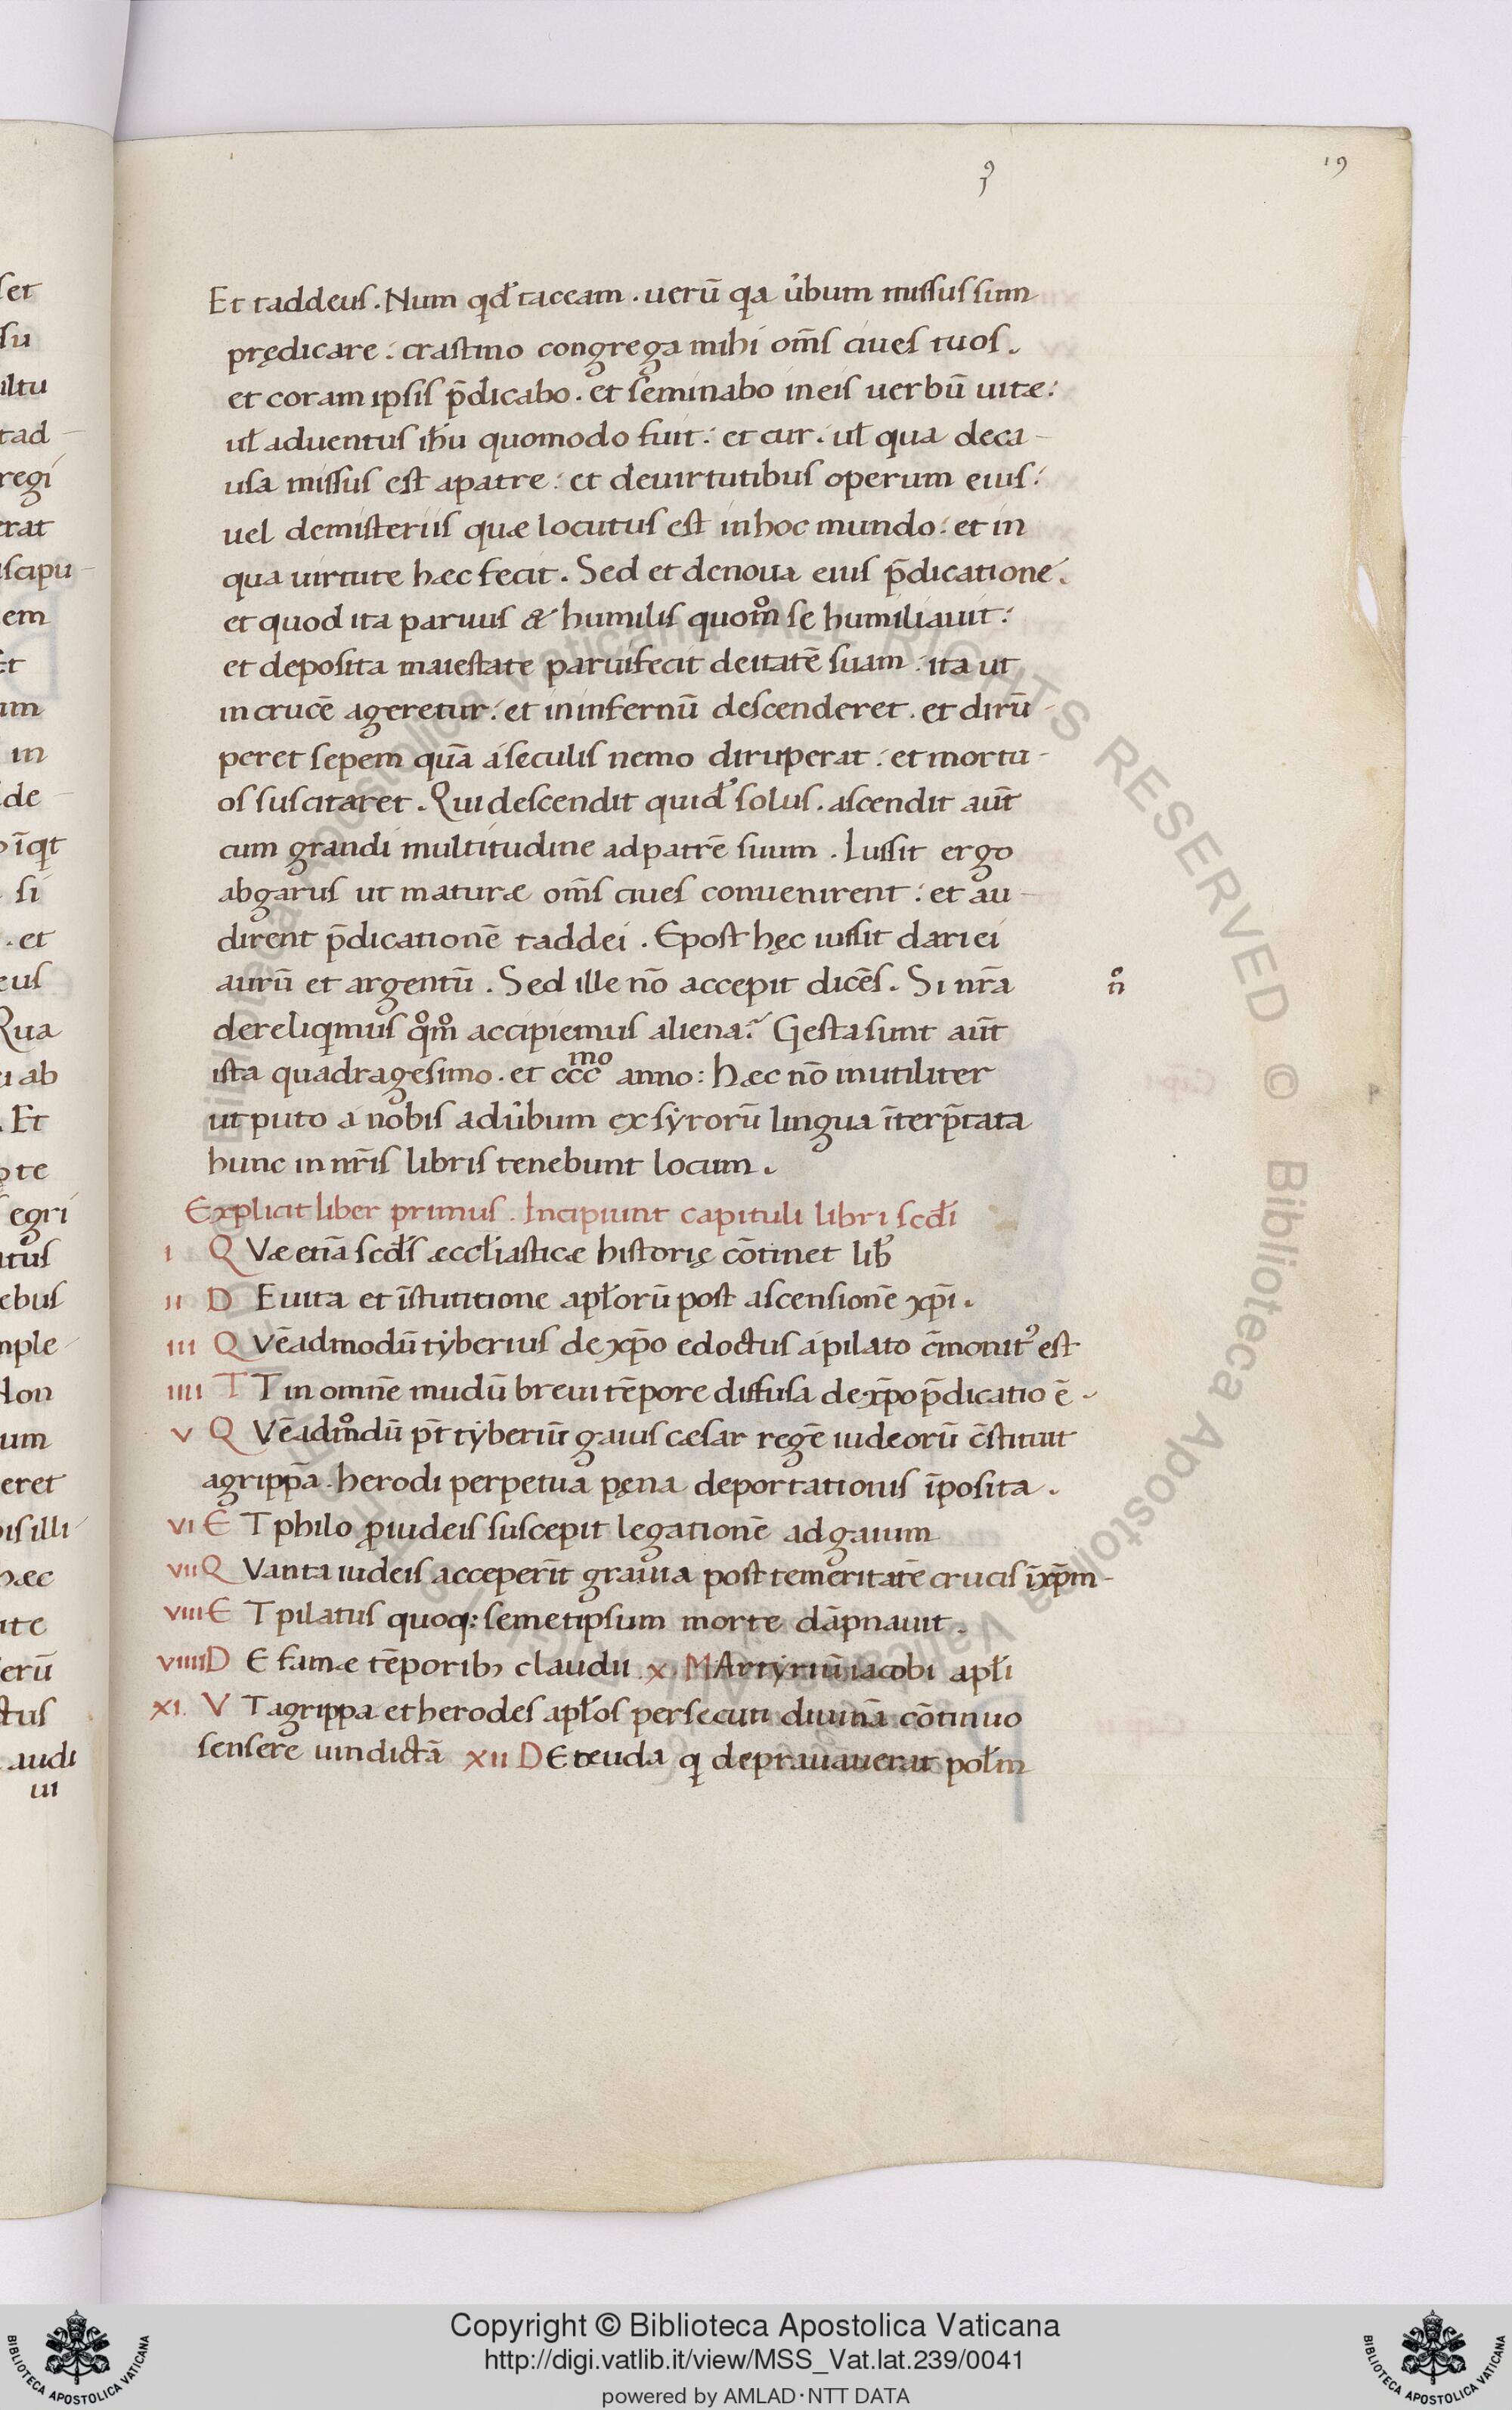 9
19
Et taddeus. Num qd̛ taceam. uerū qa u̓bum missus sum
prędicare: crastino congrega mihi om̄s ciues tuos.
et coram ipsis p̄dicabo. et seminabo in eis uerbū uitæ:
ul̛ aduentus ih̄u quomodo fuit: et cur: ul̛ qua de ca-
usa missus est apatre: et deuirtutibus operum eius:
uel demisteriis quæ locutus est inhoc mundo: et in
qua uirtute hæc fecit. Sed et denoua eius p̄dicatione.
et quod ita paruus & humilis quom̊ se humiliauit:
et deposita maiestate paruifecit deitatē suam: ita ut
incrucē ageretur: et ininfernū descenderet. et dirū-
peret sepem quā aseculis nemo diruperat: et mortu-
os suscitaret. Qui descendit quid̛ solus. ascendit aūt
cum grandi multitudine adpatrē suum. Iussit ergo
abgarus ut maturæ om̄s ciues conuenirent: et au-
dirent p̄dicationē taddei. Epost hęc iussit dari ei
aurū et argentū. Sed ille nō accepit dicēs. Si nr̄a
n̊
dereliqimus qm̊ accipiemus aliena? Gesta sunt aūt
ista quadragesimo. et cccᵐᵒ anno: hæc nō inutiliter
ut puto a nobis adu̓bum ex syrorū lingua īterp̄tata
hunc in nr̄is libris tenebunt locum.
Explicit liber primus. Incipiunt capituli libri scd̄i
I QVæ etiā scd̄s æccl̄iasticæ historię cōtinet lib̄
II DE uita et īstutitione apl̄orū post ascensionē xp̄i.
III QVēadmodū tyberius de xp̄o edoctus a pilato c̄monit᾽ est
IIII TTin omnē mudū breui tēpore diffusa de xp̄o p̄dicatio ē.
V QVēadm̊dū p̄t tyberiū gaius cæsar regē iudeorū c̄stituit
agrippā. herodi perpetua pęna deportationis īposita.
VI ET philo ꝓiudeis suscepit legationē ad gaium
VII QVanta iudeis acceperīt grauia post temeritatē crucis īxp̄m-
VIII ET pilatus quoq: semetipsum morte dāpnauit.
VIIII DE famæ tēporib; claudii. X. MArtyriū iacobi apl̄i
XI. VT agrippa et herodes apl̄os persecuti diuinā cōtinuo
sensere uindictā XII DE teuda q deprauauerat pol̄m
set
su
ultu
tad-
regi
erat
iscipu-
em
et
um
in
de-
īqt
si
. et
eus
Qua
ab
. Et
te
egri
tus
ebus
mple-
Non
um
eret
is illi-
hæc
ite
erū
tus
audi
ui
Biblioteca Apostolica Vaticana ALL RIGHTS RESERVED © Biblioteca Apostolica Vaticana
BIBLIOTECA APOSTOLICA VATICANA
Copyright © Biblioteca Apostolica Vaticana
http://digi.vatlib.it/view/MSS_Vat.lat.239/0041
powered by AMLAD·NTT DATA
BIBLIOTECA APOSTOLICA VATICANA